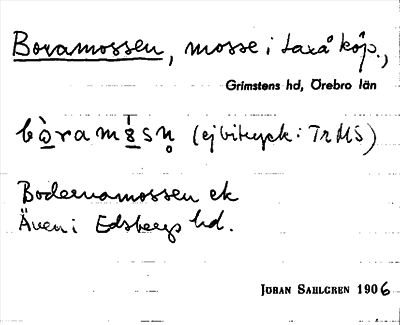 Boramossen, mosse i Laxå köp.,
Grimstens hd, Örebro län
(ej bitryck: TrMS)
Bodernamossen ek
Även i Edsbergs hd.
JOHAN SAHLGREN 1906